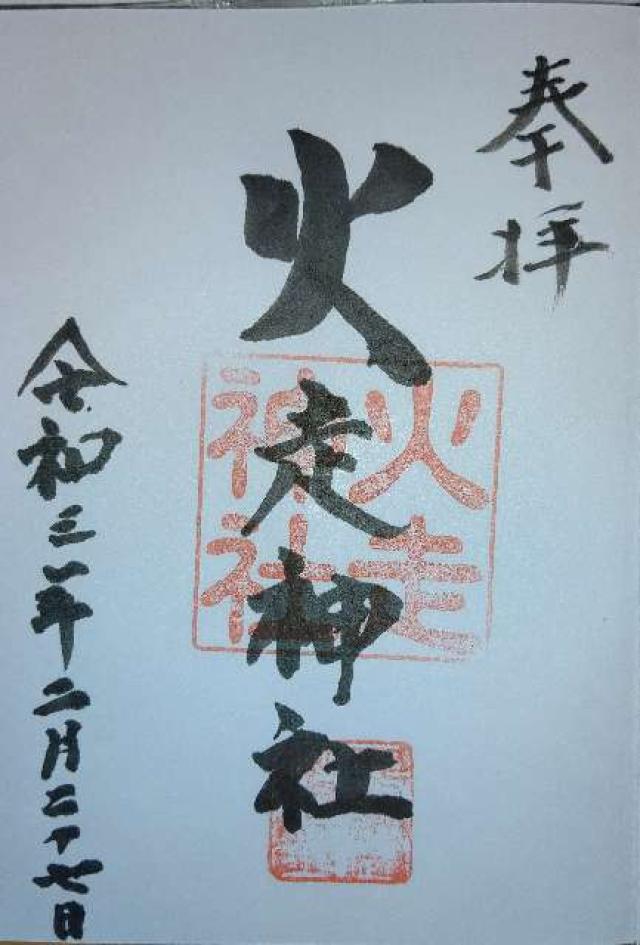 奉拝
火走神社
火走
神社
令和三年二月二十七日